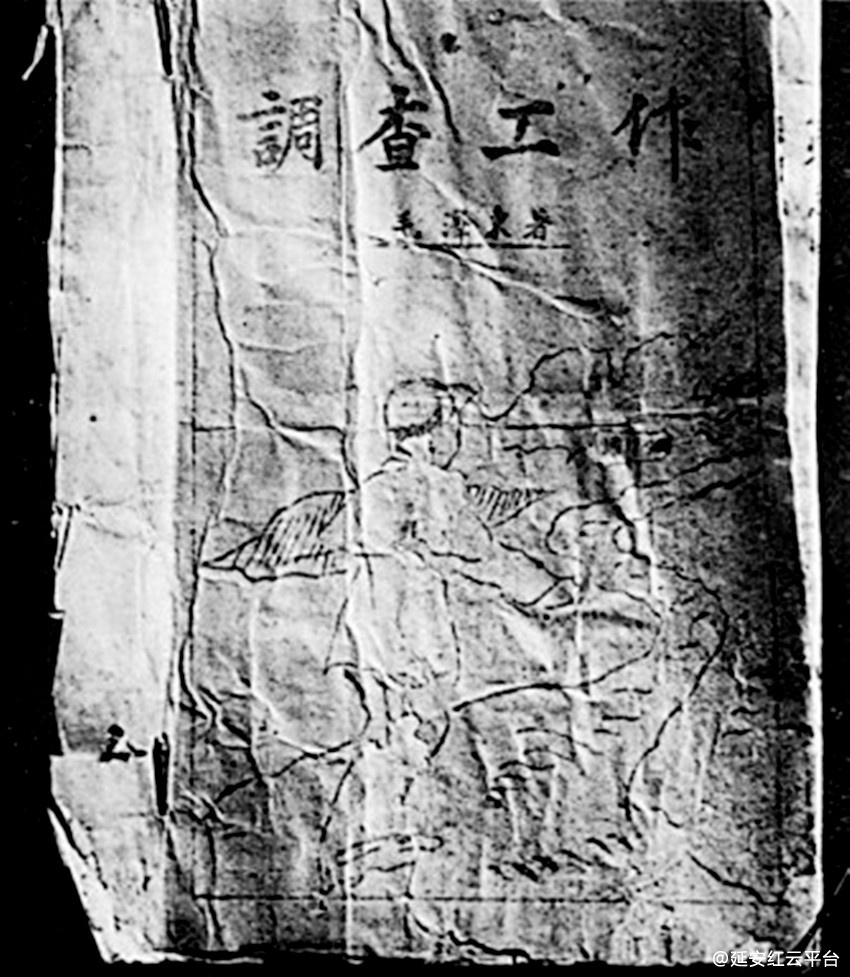 調查工作
毛澤東著
2.
@延安红云平台